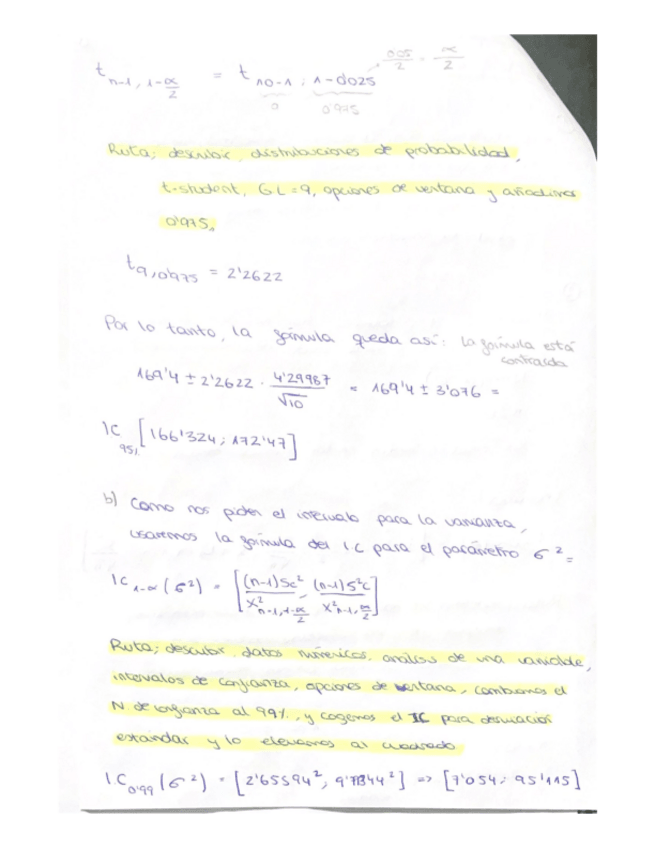 0'05/2 = α/2
t n-1, 1-α/2 = t 10-1; 1-0'025
9 0'975
Ruta; describir, distribuciones de probabilidad,
t-student, GL=9, opciones de ventana y añadimos
0'975.
t9,0'975 = 2'2622
Por lo tanto, la fórmula queda así: la fórmula está
contraída
169'4 ± 2'2622 · 4'29987/√10 = 169'4 ± 3'076 =
IC 95% [166'324; 172'47]
b) Como nos piden el intervalo para la varianza,
usaremos la fórmula del IC para el parámetro σ² =
IC 1-α (σ²) = [(n-1)Sc²/X² n-1,1-α/2 , (n-1)S²c/X² n-1,α/2]
Ruta; describir, datos numéricos, análisis de una variable,
intervalos de confianza, opciones de ventana, cambiamos el
N. de confianza al 99%, y cogemos el IC para desviación
estándar y lo elevamos al cuadrado
IC 0'99 (σ²) = [2'65594², ] => [7'054; 95'115]